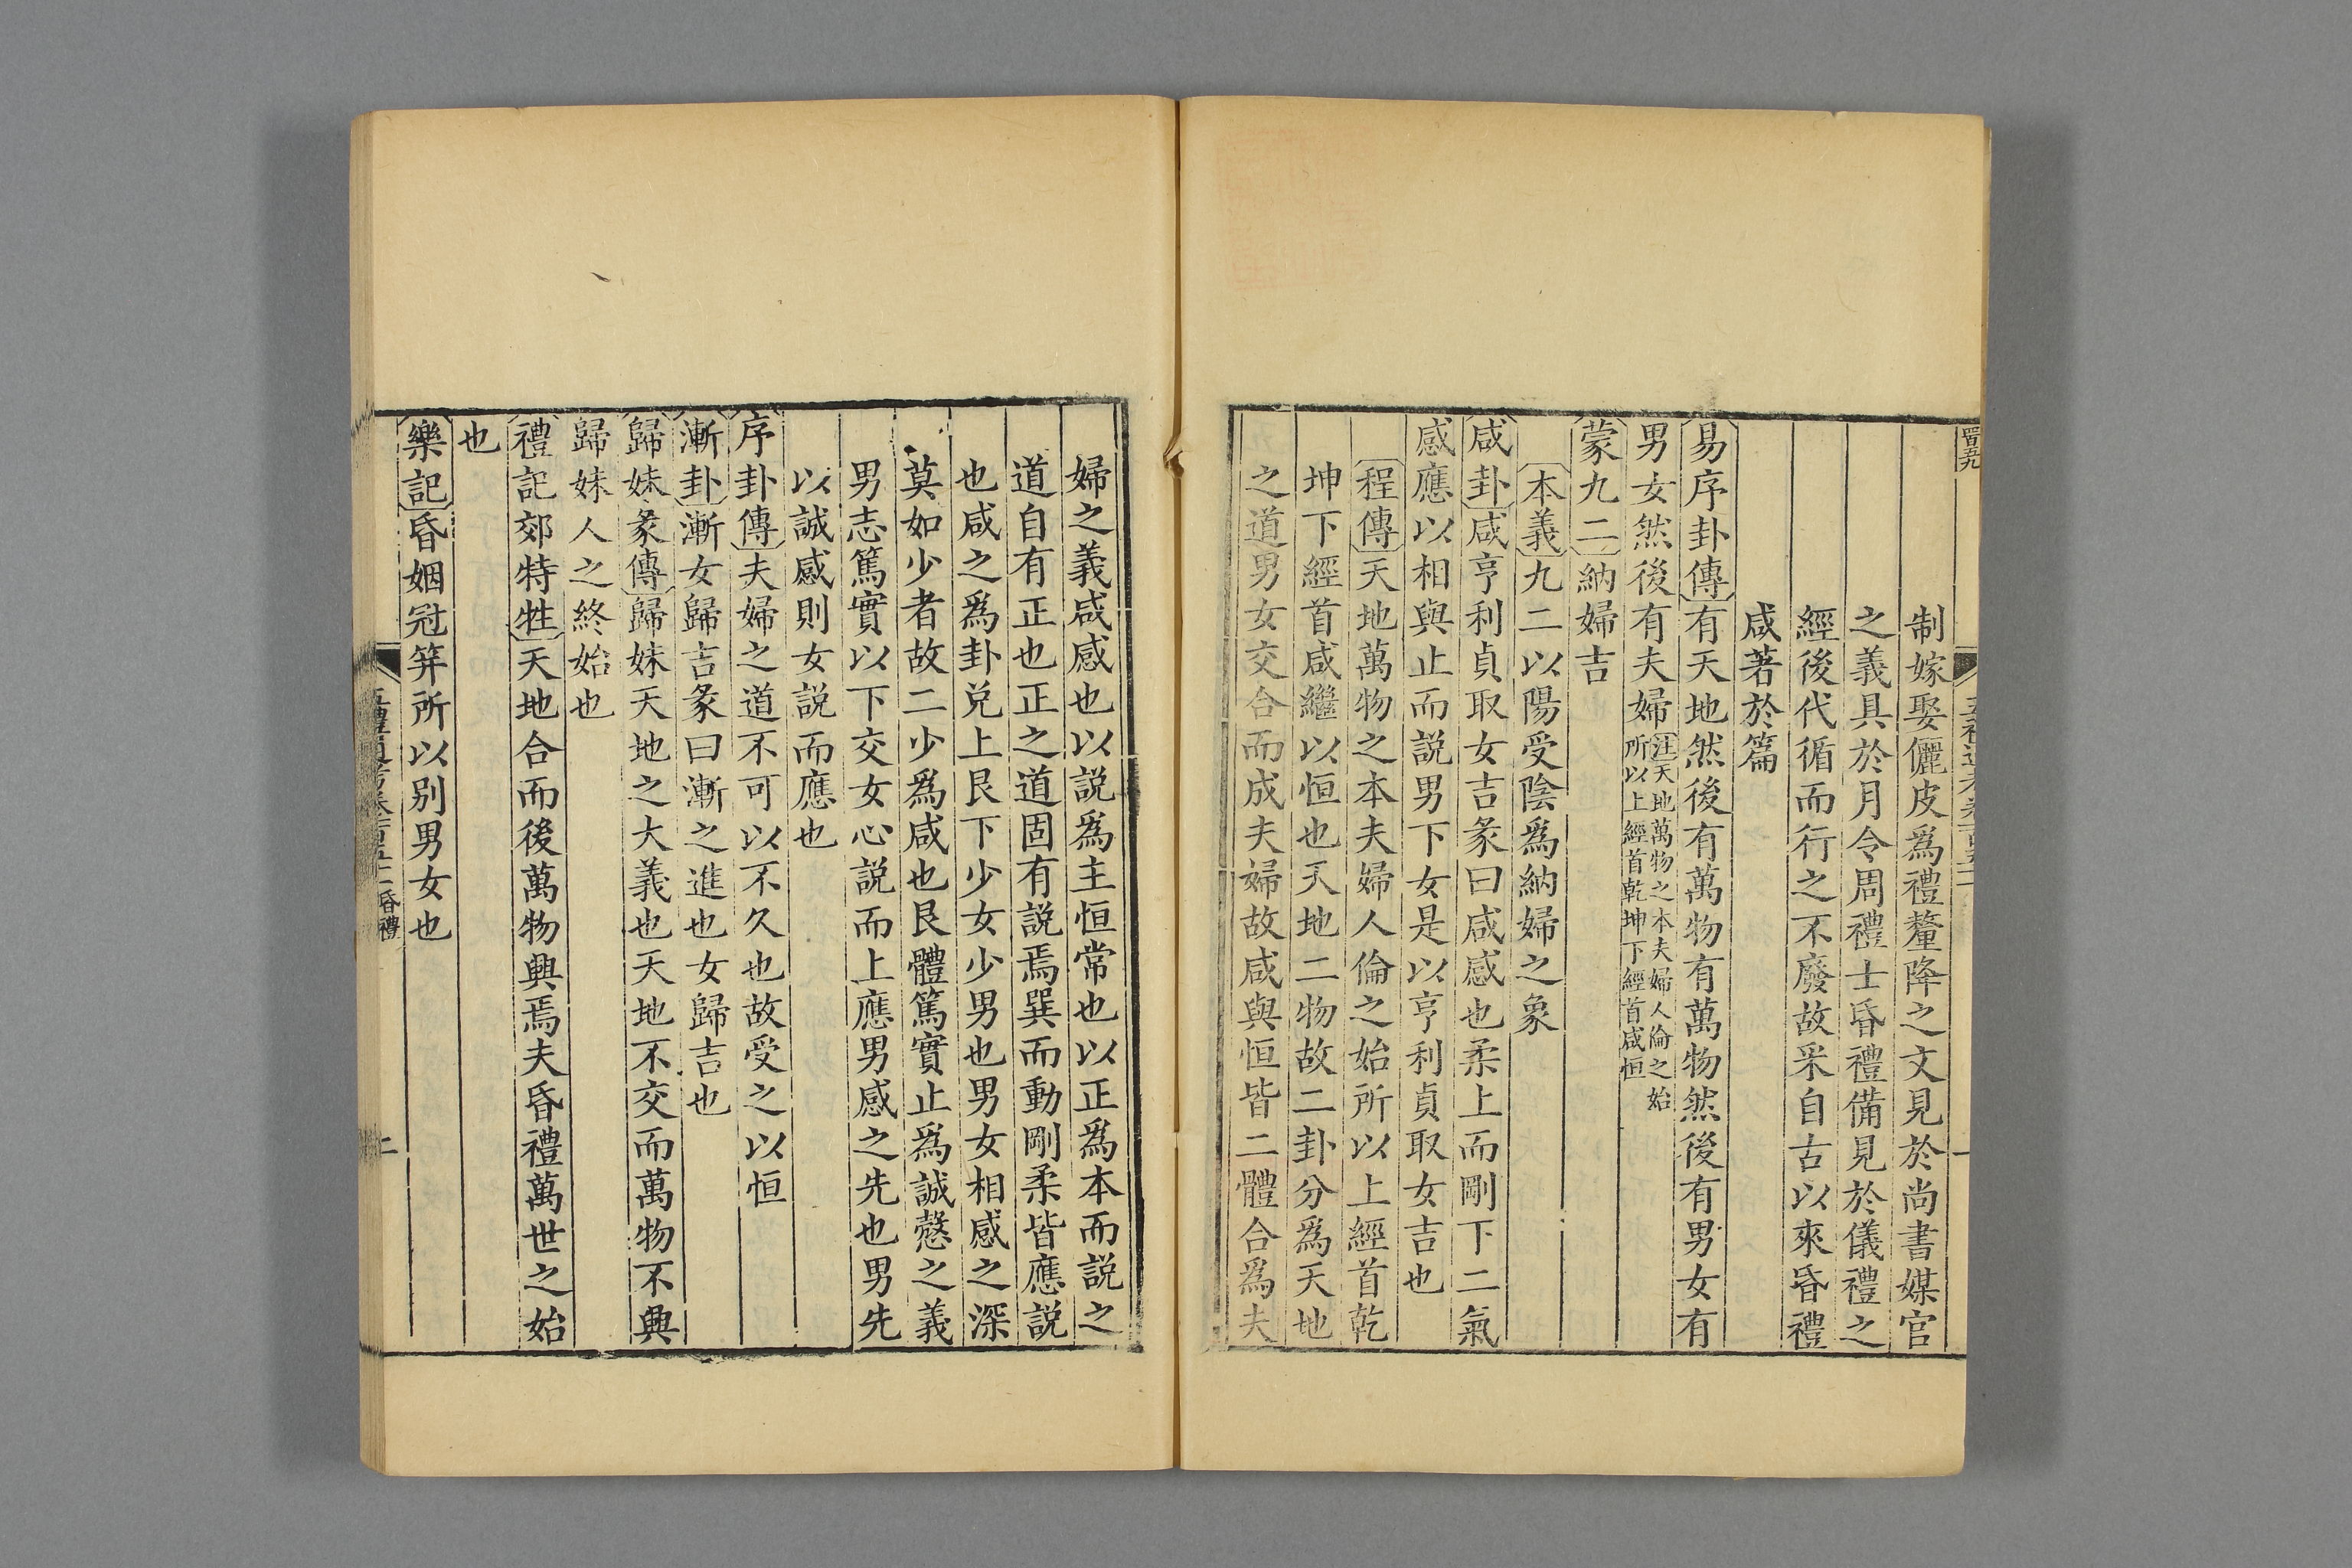 制嫁娶儷皮爲禮釐降之文見於尚書媒官
之義具於月令周禮士昏禮備見於儀禮之
經後代循而行之不廢故采自古以來昏禮
咸著於篇
易序卦傳有天地然後有萬物有萬物然後有男女有
男女然後有夫婦注天地萬物之本夫婦人倫之始
所以上經首乾坤下經首咸恒
蒙九二納婦吉
本義九二以陽受陰爲納婦之象
咸卦咸亨利貞取女吉彖曰咸感也柔上而剛下二氣
感應以相與止而說男下女是以亨利貞取女吉也
程傳天地萬物之本夫婦人倫之始所以上經首乾
坤下經首咸繼以恒也天地二物故二卦分爲天地
之道男女交合而成夫婦故咸與恒皆二體合爲夫
婦之義咸感也以說爲主恒常也以正爲本而說之
道自有正也正之道固有說焉巽而動剛柔皆應說
也咸之爲卦兌上艮下少女少男也男女相感之深
莫如少者故二少爲咸也艮體篤實止爲誠慤之義
男志篤實以下交女心說而上應男感之先也男先
以誠感則女說而應也
序卦傳夫婦之道不可以不久也故受之以恒
漸卦漸女歸吉彖曰漸之進也女歸吉也
歸妹彖傳歸妹天地之大義也天地不交而萬物不興
歸妹人之終始也
禮記郊特牲天地合而後萬物興焉夫昏禮萬世之始
也
樂記昏姻冠笄所以別男女也
昏禮
二